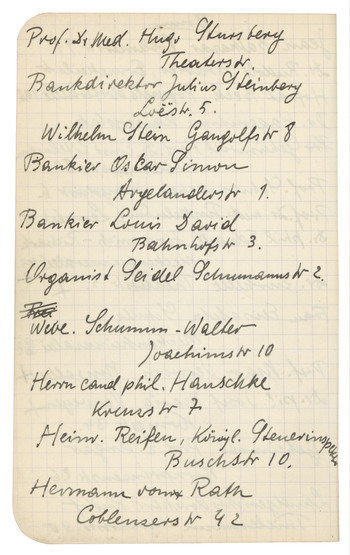 Prof. Dr Med. Hugo Stursberg
Theaterstr.
Bankdirektor Julius Steinberg
Loëstr. 5.
Wilhelm Stein Gangolfstr 8
Bankier Oscar Simon
Argelanderstr 1.
Bankier Louis David
Bahnhofstr 3.
Organist Seidel Schumannstr 2.
Wwe. Schumm-Walter
Joachimstr 10
Herrn cand phil. Hauschke
Kreuzstr 7
Heinr. Reifen, Königl. Steuerinspektor
Buschstr 10.
Hermann vom Rath
Coblenzerstr 42